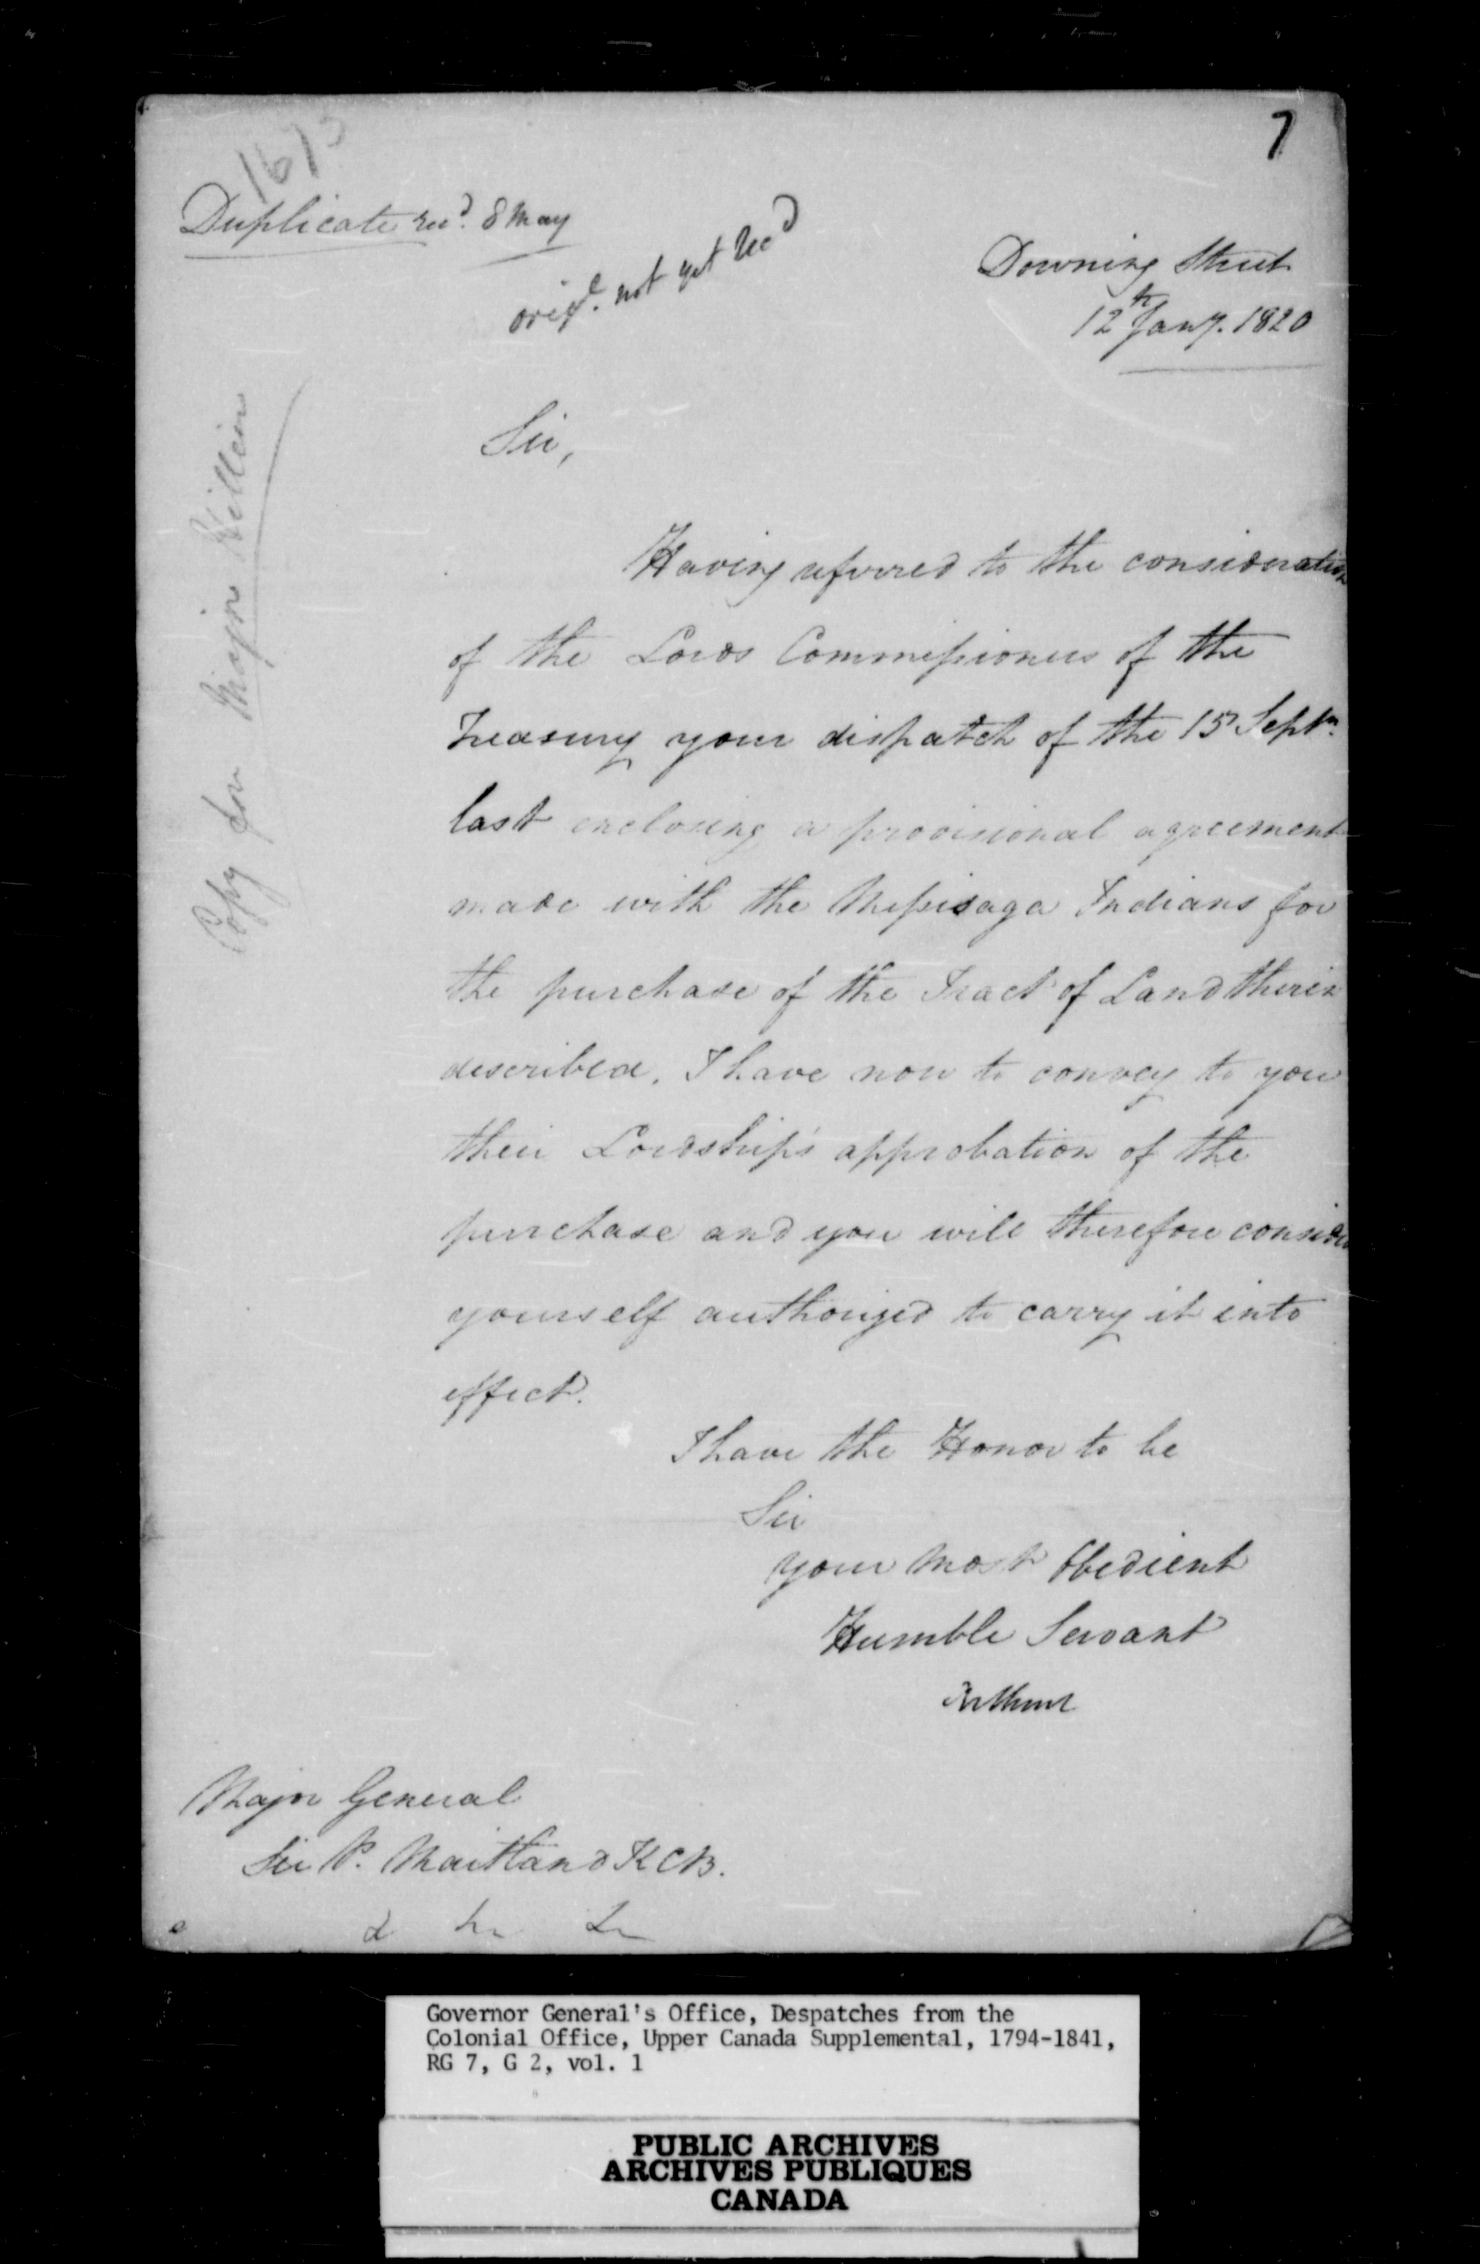 7
161
Duplicate recd. 8 May
origl. not yet Recd
Downing Street
12th Jany. 1820
Copy for Major Hillier
Sir,
Having referred to the consideration
of the Lords Commissioners of the
Treasury your dispatch of the 15 Septr.
last enclosing a provisional agreement
made with the Missisaga Indians for
the purchase of the Tract of Land therein
described, I have now to convey to you
their Lordship's approbation of the
purchase and you will therefore consider
yourself authorized to carry it into
effect.
I have the Honor to be
Sir
your most Obedient
Humble Servant
Bathurst
Major General
Sir P. Maitland KCB.
Governor General's Office, Despatches from the
Colonial Office, Upper Canada Supplemental, 1794-1841,
RG 7, G 2, vol. 1
PUBLIC ARCHIVES
ARCHIVES PUBLIQUES
CANADA